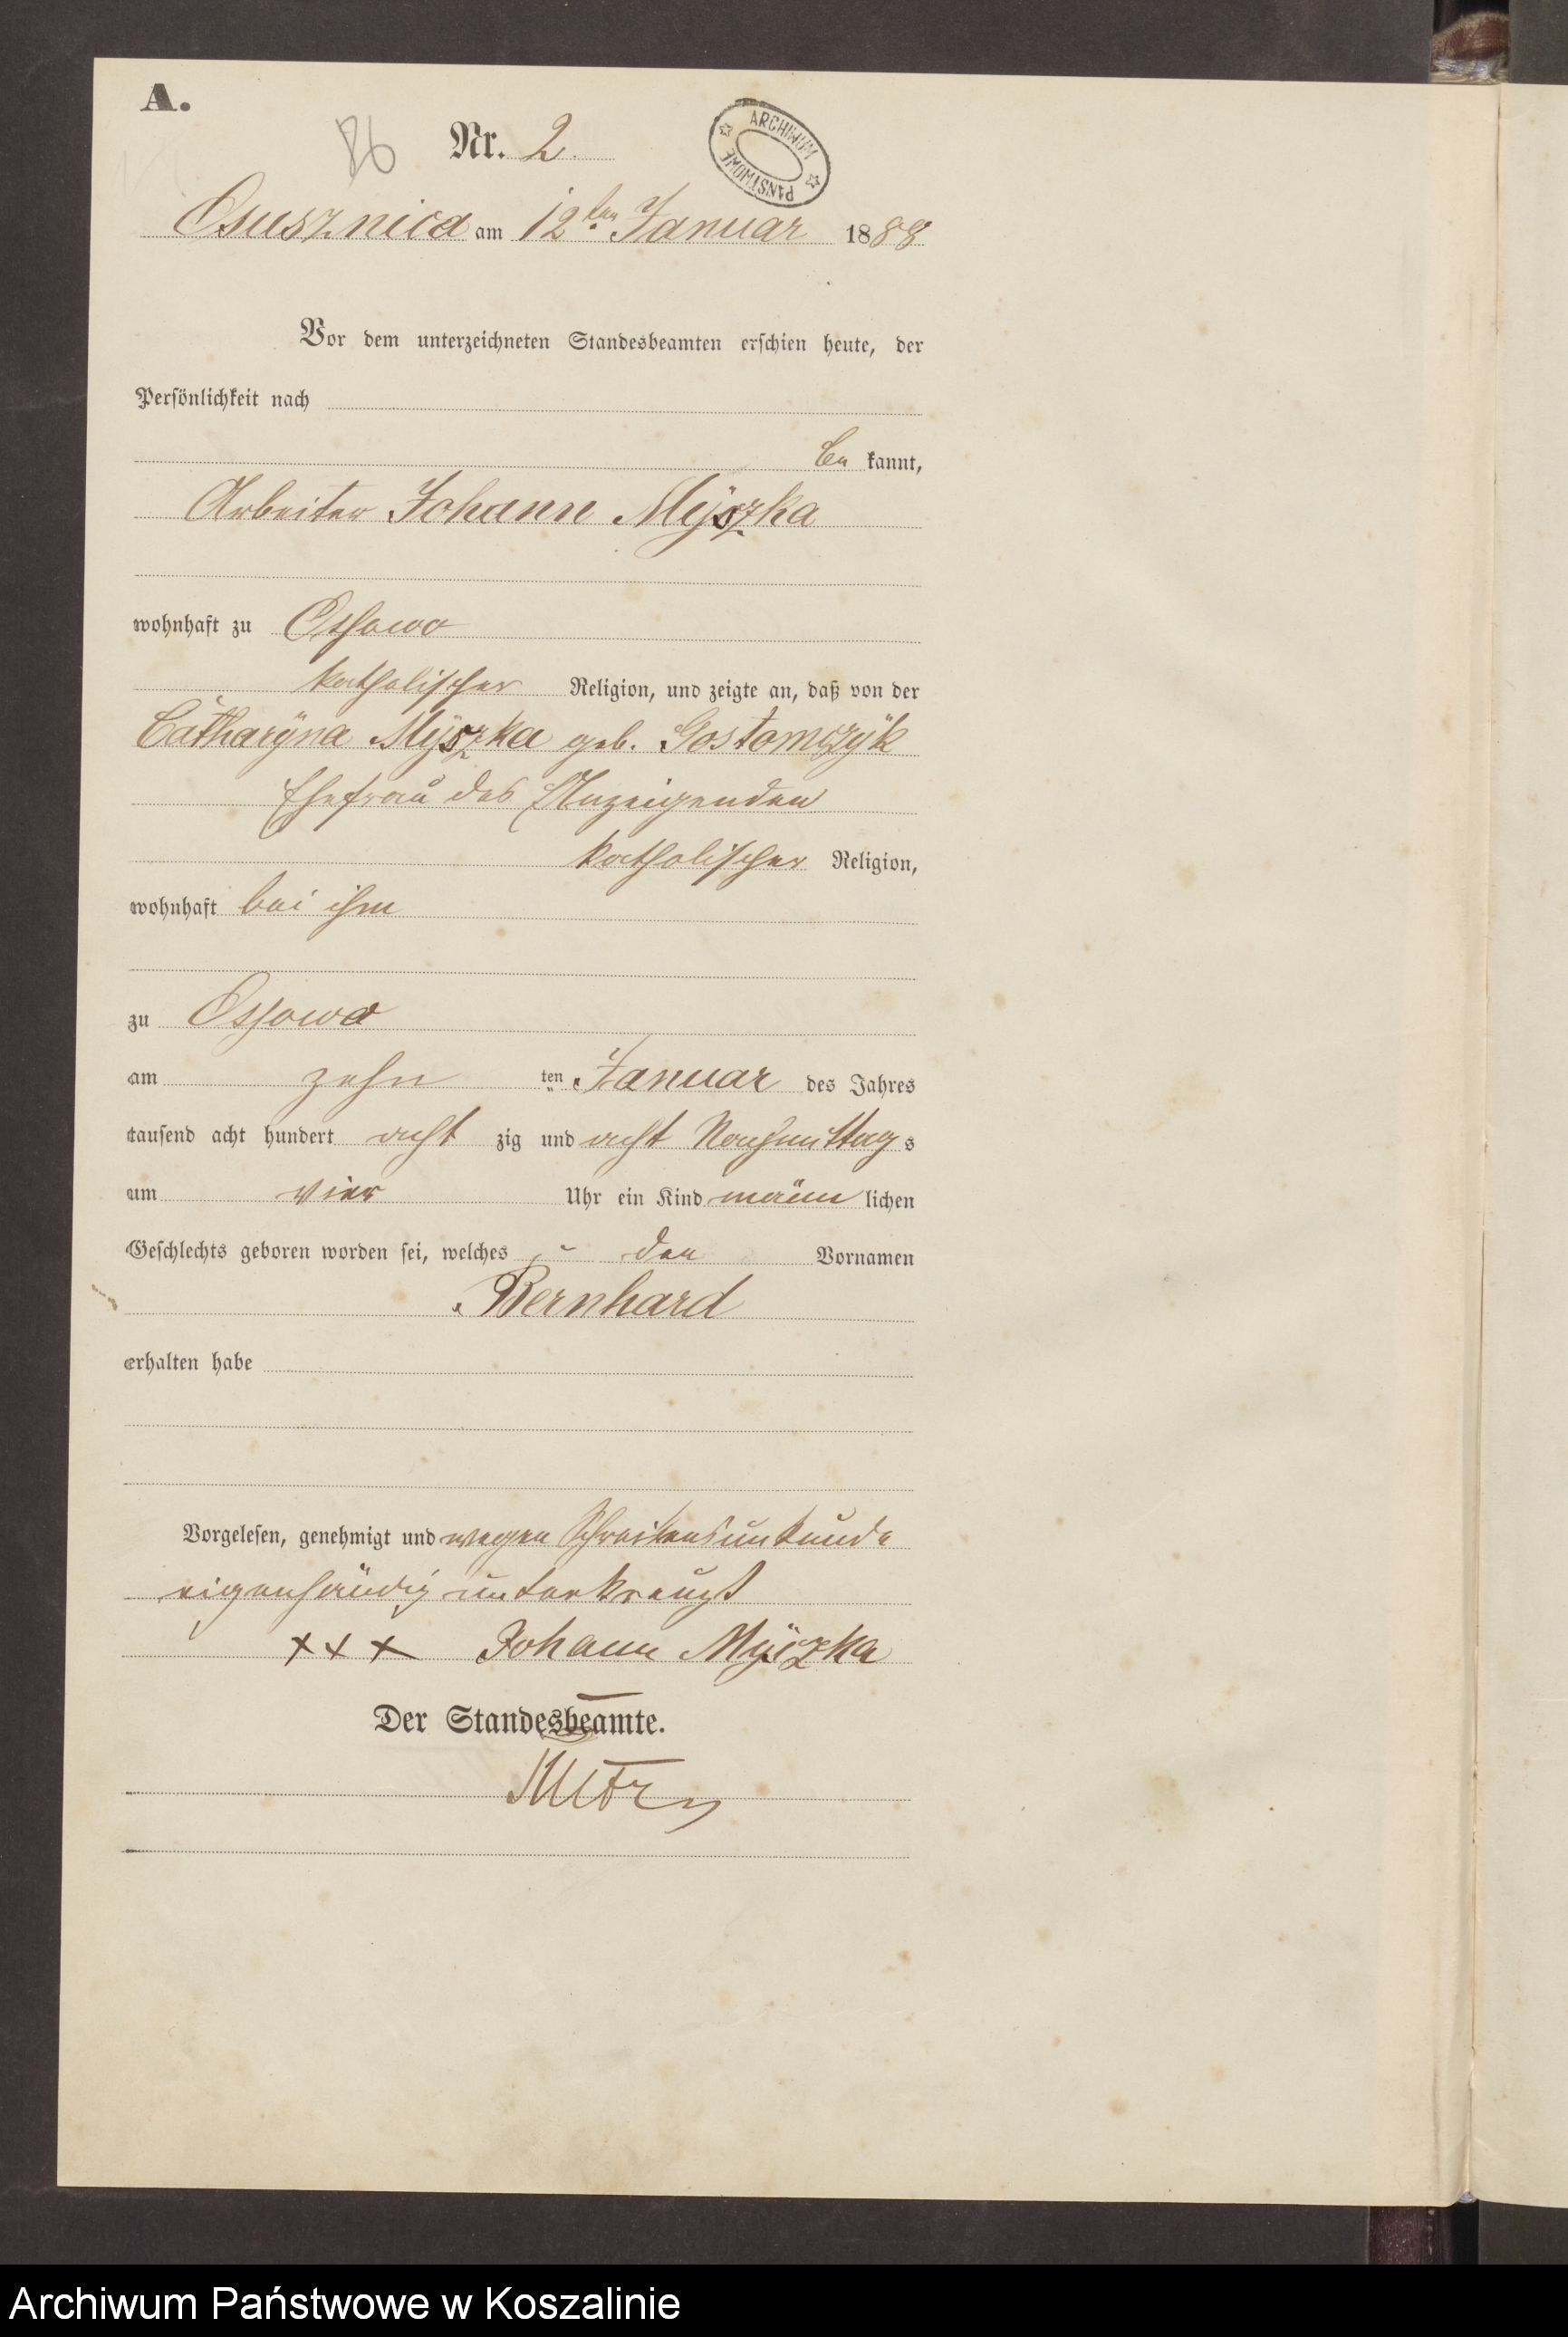 A.
86
Nr. 2.
ARCHIWUM PAŃSTWOWE
Osusznica am 12ten Januar 1888
Vor dem unterzeichneten Standesbeamten erschien heute, der
Persönlichkeit nach
be kannt,
Arbeiter Johann Myszka
wohnhaft zu Ossowo
katholischer Religion, und zeigte an, daß von der
Catharÿna Mÿszka geb. Gostomczÿk
Ehefrau des Anzeigenden
katholischer Religion,
wohnhaft bei ihm
zu Ossowo
am zehn ten Januar des Jahres
tausend acht hundert acht zig und acht Nachmittag s
um vier Uhr ein Kind männ lichen
Geschlechts geboren worden sei, welches den Vornamen
Bernhard
erhalten habe
Vorgelesen, genehmigt und wegen Schreibensunkunde
eigenhändig unterkreuzt
+++ Johann Mÿszka
Der Standesbeamte.
Archiwum Państwowe w Koszalinie